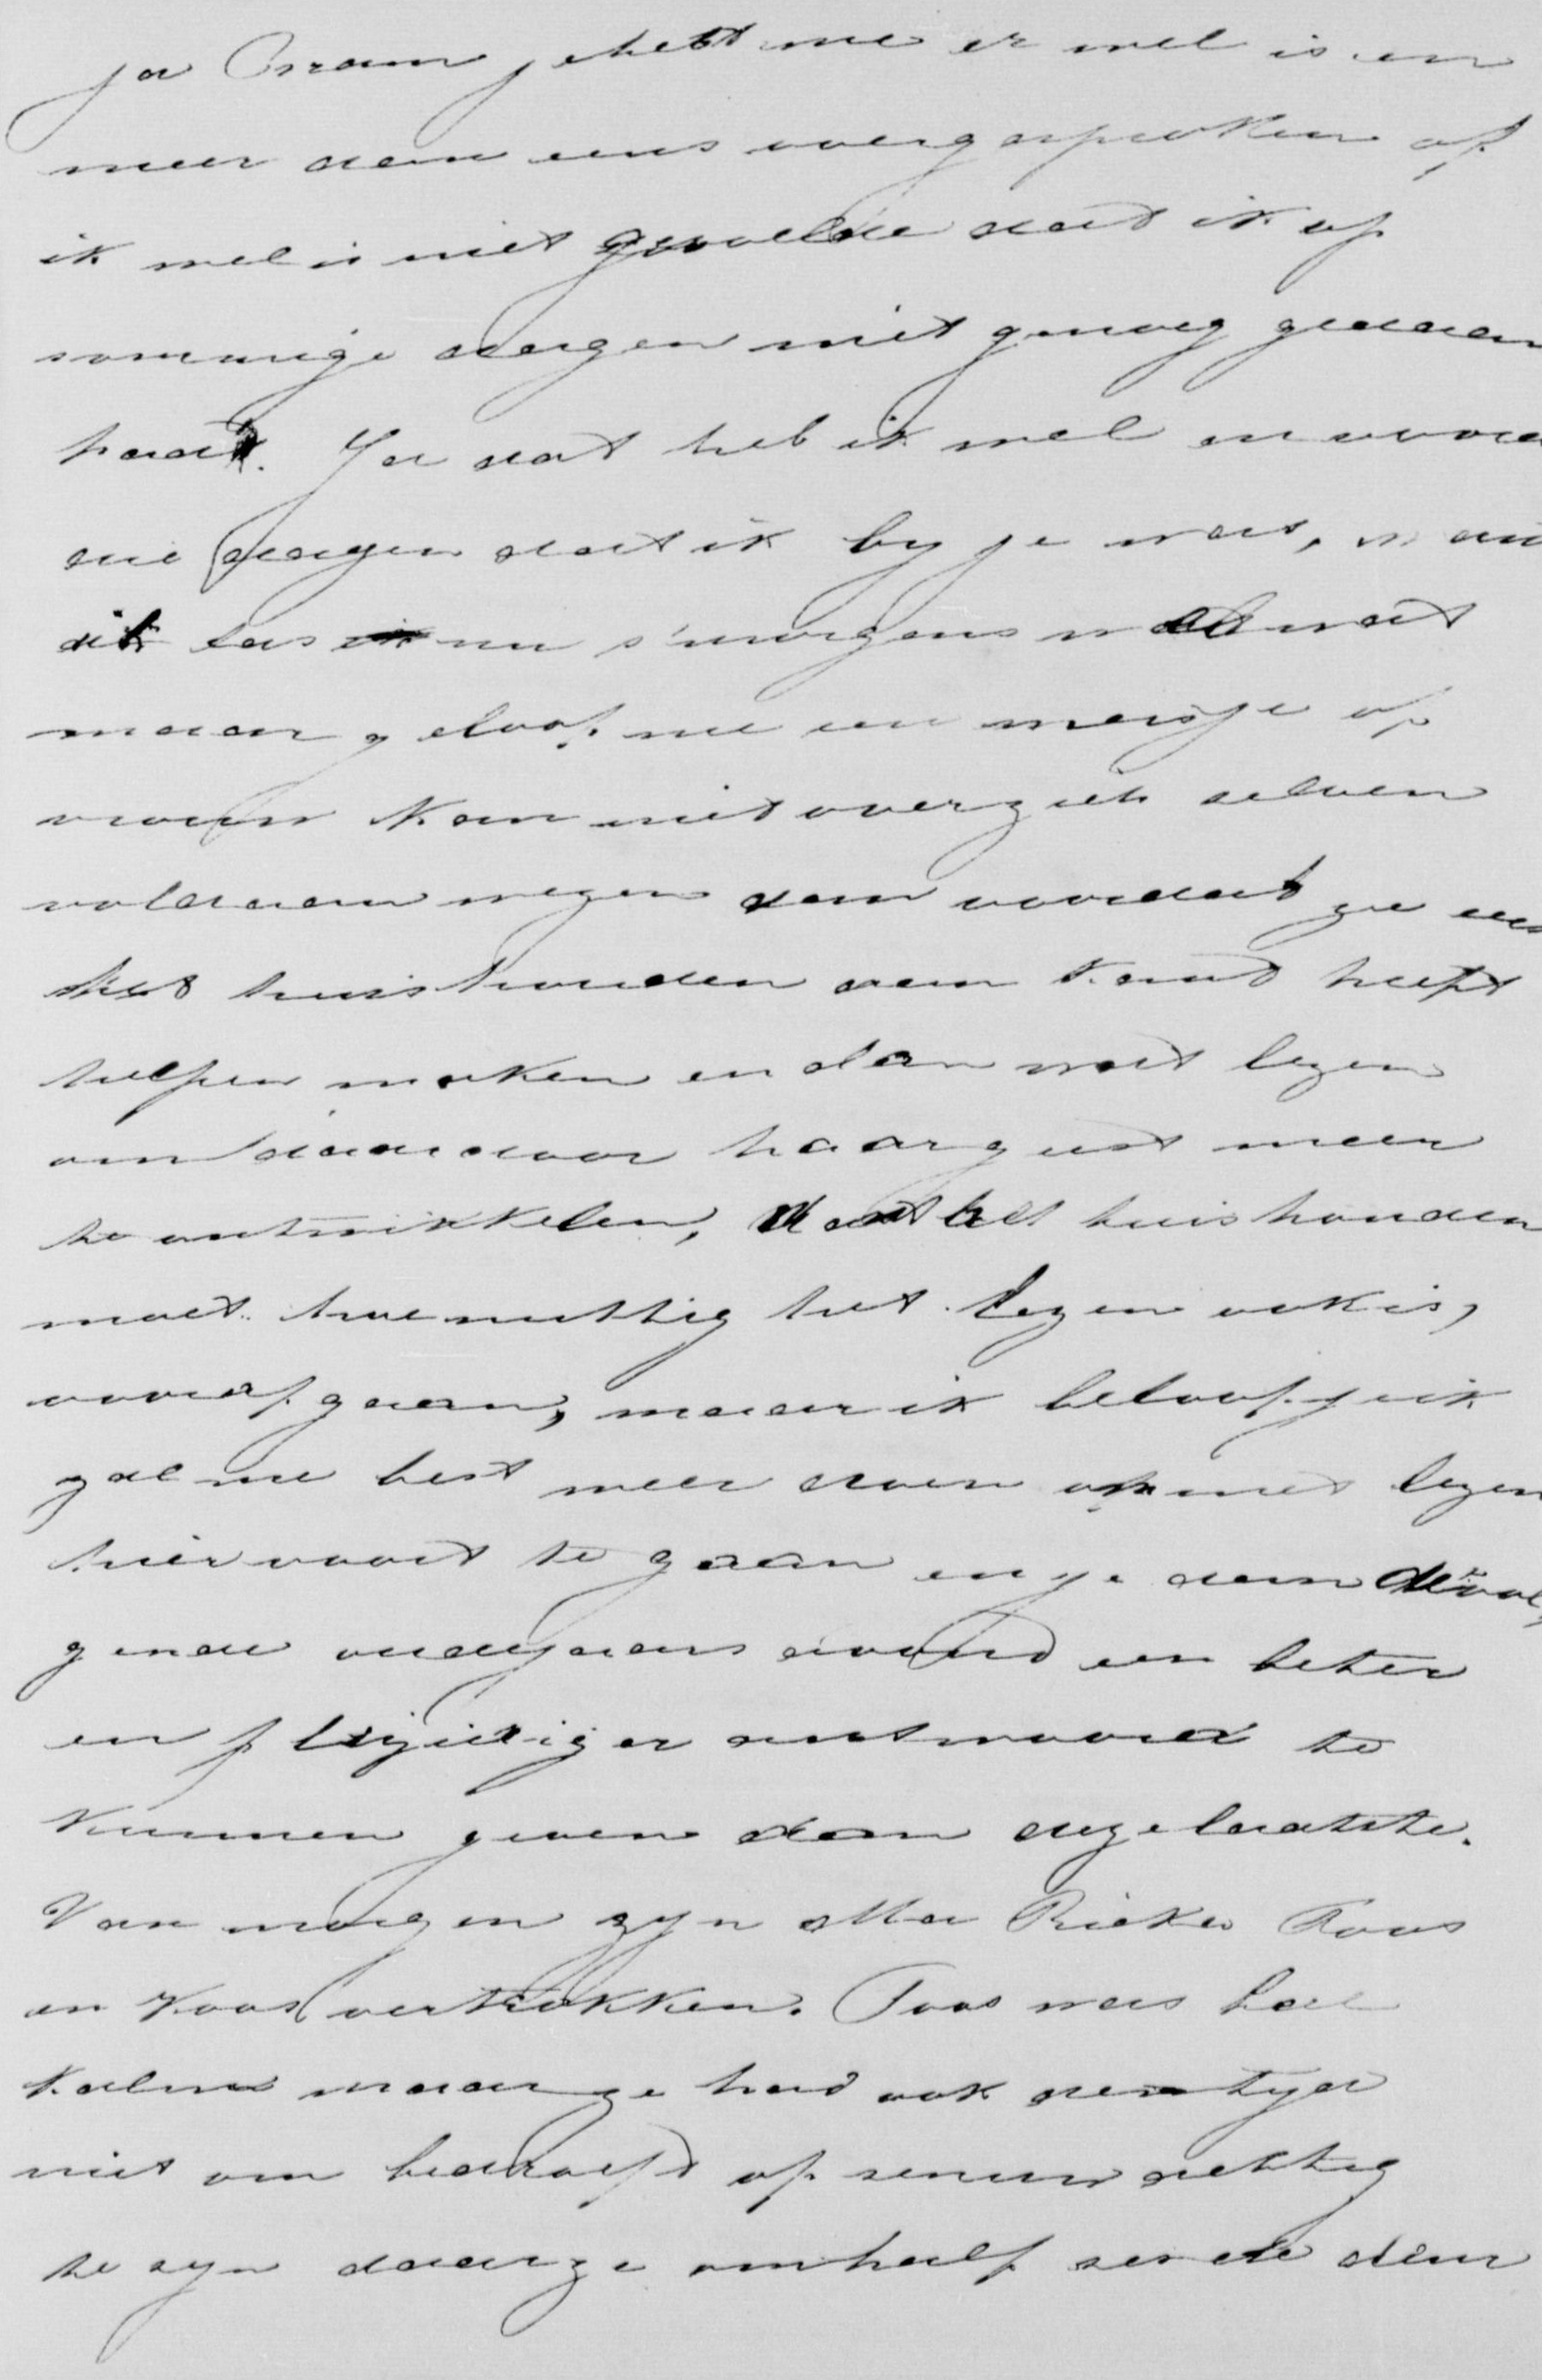 ja Bram je hebt me er wel is en
meer dan eens over gesproken of
ik wel is niet gevoelde dat ik op
sommige dagen niet genoeg gedaan
had. Ja dat heb ik wel en vooral
die dagen dat ik by je was, want
dit las ik nu s'morgens wel wat
maar geloof me een meisje of
vrouw kan niet over zich selven
voldaan wezen dan voordat ze eerst
het huishouden aan kant heeft
helpen maken en dan wat lezen
om daardoor haar geest meer
te ontwikkelen, want het huishouden
moet hoe nuttig het lezen ook is,
vooraf gaan, maar ik beloof je ik
zal me best meer doen om met lezen
hier voort te gaan en je dan de vol
gende oudejaars avond een beter
en pleizieriger antwoord te
kunnen geven dan deze laatste.
Van morgen zyn Ma Rieka Toos
en Koos vertrokken. Toos was heel
kalm maar ze had ook den tyd
niet om bedroefd of zenuwachtig
te zyn daar ze om half